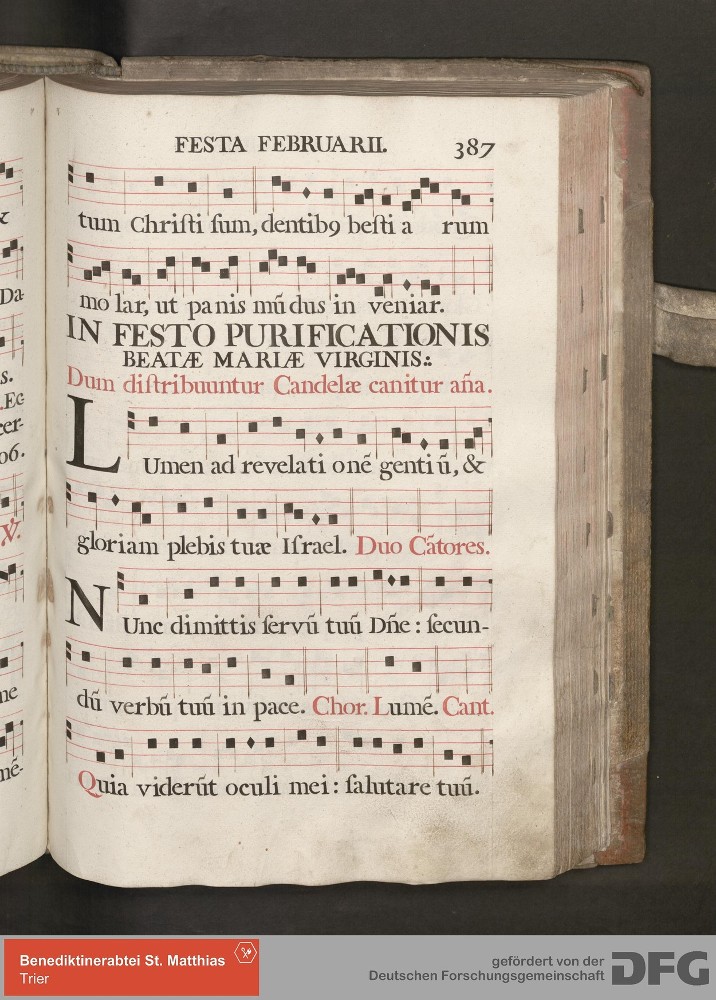 FESTA FEBRUARII. 387
tum Chriſti ſum, dentibꝰ beſti a rum
mo lar, ut panis mũ dus in veniar.
IN FESTO PURIFICATIONIS
BEATÆ MARIÆ VIRGINIS:.
Dum diſtribuuntur Candelæ canitur aña.
LUmen ad revelati onẽ genti ũ, &
gloriam plebis tuæ Iſrael. Duo Cãtores.
NUnc dimittis ſervũ tuũ Dñe : ſecun-
dũ verbũ tuũ in pace. Chor. Lumẽ. Cant.
Quia viderũt oculi mei : ſalutare tuũ.
Da-
s.
. Eg
cer-
06.
℣.
ne
mé-
Benediktinerabtei St. Matthias
Trier
gefördert von der
Deutschen Forschungsgemeinschaft
DFG